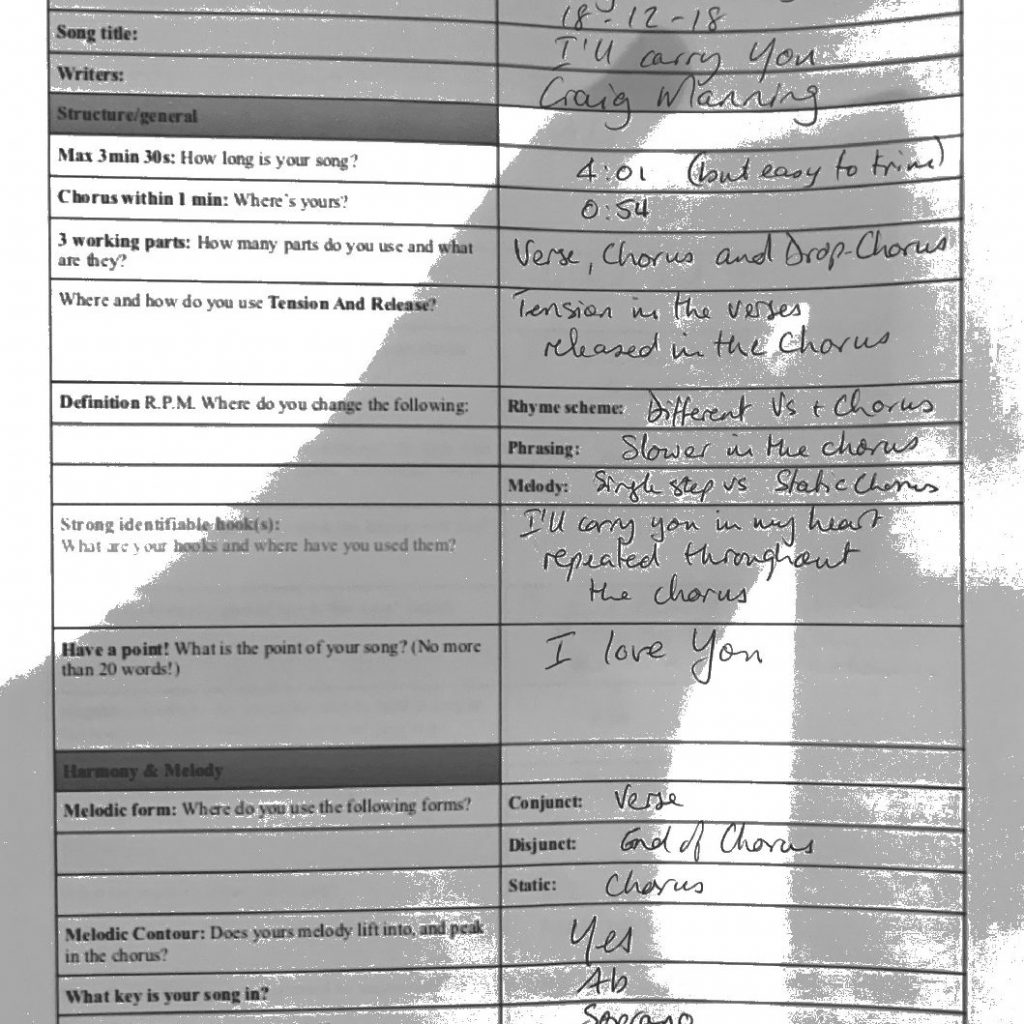 18-12-18
Song title:
I'll carry You
Writers:
Craig Manning
Structure/general
Max 3min 30s: How long is your song?
4:01 (but easy to trim)
Chorus within 1 min: Where's yours?
0:54
3 working parts: How many parts do you use and what
are they?
Verse, Chorus and Drop-Chorus
Where and how do you use Tension And Release?
Tension in the verses
released in the Chorus
Definition R.P.M. Where do you change the following:
Rhyme scheme: Different Vs + Chorus
Phrasing: Slower in the chorus
Melody: Single step vs Static Chorus
Strong identifiable hook(s):
What are your hooks and where have you used them?
I'll carry you in my heart
repeated throughout
the chorus
Have a point! What is the point of your song? (No more
than 20 words!)
I love You
Harmony & Melody
Melodic form: Where do you use the following forms?
Conjunct: Verse
Disjunct: End of Chorus
Static: Chorus
Melodic Contour: Does yours melody lift into, and peak
in the chorus?
Yes
What key is your song in?
Ab
Soprano